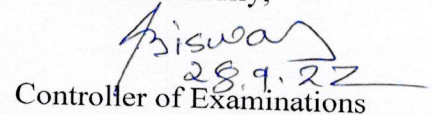 Biswas
28.9.22
Controller of Examinations